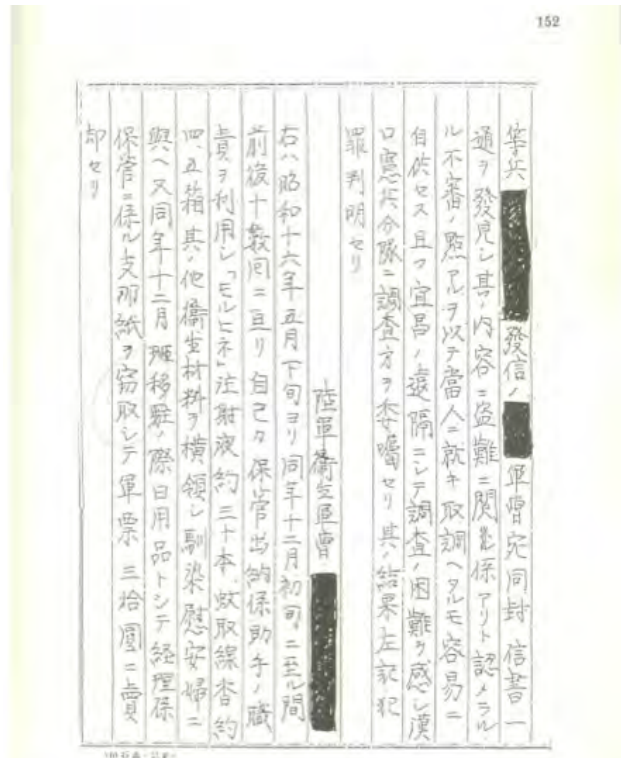 152
等兵 發信ノ 軍曹宛同封信書一
通ヲ發見シ其ノ内容ニ盗難ニ関係アリト認メラル
ル不審ノ點アルヲ以テ當人ニ就キ取調ヘタルモ容易ニ
自供セス且ツ宜昌ノ遠隔ニシテ調査ノ困難ヲ感シ漢
口憲兵分隊ニ調査方ヲ委嘱セリ其ノ結果左記犯
罪判明セリ
陸軍衛生軍曹
右ハ昭和十六年五月下旬ヨリ同年十二月初旬ニ至ル間
前後十数回ニ亘リ自己カ保管出納係助手ノ職
責ヲ利用シ「モルヒネ」注射液約三十本、蚊取線香約
四、五箱其ノ他衛生材料ヲ横領シ馴染慰安婦ニ
與ヘ又同年十二月班移駐ノ際日用品トシテ経理係
保管ニ係ル支那紙ヲ窃取シテ軍票三拾圓ニ賣
却セリ